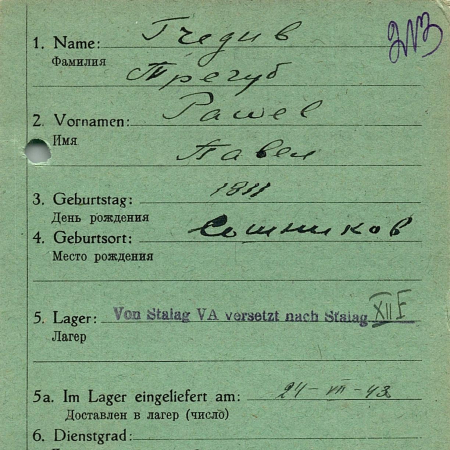 213
1. Name:
Фамилия
Трегуб
2. Vornamen: Pawel
Имя
Павел
3. Geburtstag: 1911
День рождения
4. Geburtsort: Сошников
Место рождения
5. Lager: Von Stalag VA versetzt nach Stalag XII F
Лагер
5a. Im Lager eingeliefert am: 24-VII-43
Доставлен в лагер (число)
6. Dienstgrad: